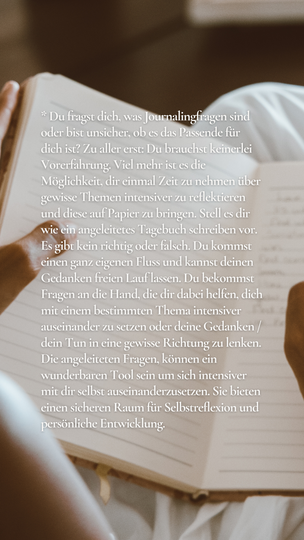 * Du fragst dich, was Journalingfragen sind
oder bist unsicher, ob es das Passende für
dich ist? Zu aller erst: Du brauchst keinerlei
Vorerfahrung. Viel mehr ist es die
Möglichkeit, dir einmal Zeit zu nehmen über
gewisse Themen intensiver zu reflektieren
und diese auf Papier zu bringen. Stell es dir
wie ein angeleitetes Tagebuch schreiben vor.
Es gibt kein richtig oder falsch. Du kommst
einen ganz eigenen Fluss und kannst deinen
Gedanken freien Lauf lassen. Du bekommst
Fragen an die Hand, die dir dabei helfen, dich
mit einem bestimmten Thema intensiver
auseinander zu setzen oder deine Gedanken /
dein Tun in eine gewisse Richtung zu lenken.
Die angeleiteten Fragen, können ein
wunderbaren Tool sein um sich intensiver
mit dir selbst auseinanderzusetzen. Sie bieten
einen sicheren Raum für Selbstreflexion und
persönliche Entwicklung.